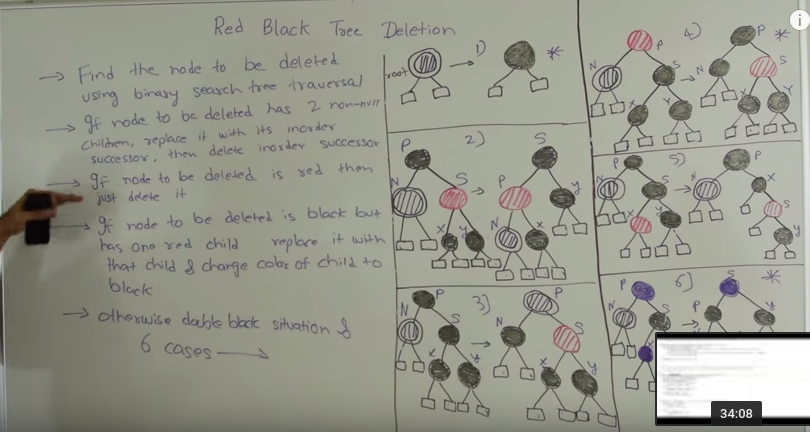 Red Black Tree Deletion
→ Find the node to be deleted
using binary search tree traversal
→ If node to be deleted has 2 non-null
children, replace it with its inorder
successor, then delete inorder successor
→ If node to be deleted is red then
just delete it
→ If node to be deleted is black but
has one red child replace it with
that child & change color of child to
black
→ otherwise double black situation &
6 cases →
1)
root → *
2)
P S
N S → P Y
X Y N X
3)
P P
N S → N S
X Y X Y
4)
P P *
N S → N S
X Y X Y
5)
P P
N S → N X
X Y S
Y
6)
P S *
N S → P Y
X
34:08
i